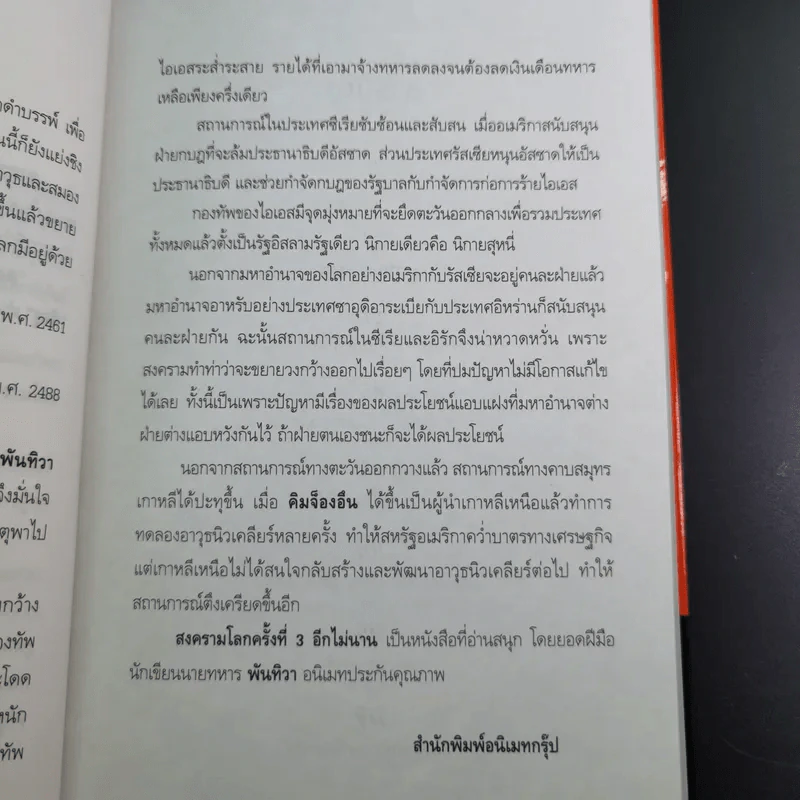 าดำบรรพ์ เพื่อ
นนี้ก็ยังแย่งชิง
าวุธและสมอง
ขึ้นแล้วขยาย
ลกมีอยู่ด้วย
พ.ศ. 2461
.ศ. 2488
พันทิวา
จึงมั่นใจ
ตุพาไป
กว้าง
องทัพ
ะโดด
หนัก
ทัพ
ไอเอสระส่ำระสาย รายได้ที่เอามาจ้างทหารลดลงจนต้องลดเงินเดือนทหาร
เหลือเพียงครึ่งเดียว
สถานการณ์ในประเทศซีเรียซับซ้อนและสับสน เมื่ออเมริกาสนับสนุน
ฝ่ายกบฎที่จะล้มประธานาธิบดีอัสซาด ส่วนประเทศรัสเซียหนุนอัสซาดให้เป็น
ประธานาธิบดี และช่วยกำจัดกบฎของรัฐบาลกับกำจัดการก่อการร้ายไอเอส
กองทัพของไอเอสมีจุดมุ่งหมายที่จะยึดตะวันออกกลางเพื่อรวมประเทศ
ทั้งหมดแล้วตั้งเป็นรัฐอิสลามรัฐเดียว นิกายเดียวคือ นิกายสุหนี่
นอกจากมหาอำนาจของโลกอย่างอเมริกากับรัสเซียจะอยู่คนละฝ่ายแล้ว
มหาอำนาจอาหรับอย่างประเทศซาอุดิอาระเบียกับประเทศอิหร่านก็สนับสนุน
คนละฝ่ายกัน ฉะนั้นสถานการณ์ในซีเรียและอิรักจึงน่าหวาดหวั่น เพราะ
สงครามทำท่าว่าจะขยายวงกว้างออกไปเรื่อยๆ โดยที่ปมปัญหาไม่มีโอกาสแก้ไข
ได้เลย ทั้งนี้เป็นเพราะปัญหามีเรื่องของผลประโยชน์แอบแฝงที่มหาอำนาจต่าง
ฝ่ายต่างแอบหวังกันไว้ ถ้าฝ่ายตนเองชนะก็จะได้ผลประโยชน์
นอกจากสถานการณ์ทางตะวันออกกวางแล้ว สถานการณ์ทางคาบสมุทร
เกาหลีได้ปะทุขึ้น เมื่อ คิมจ็องอึน ได้ขึ้นเป็นผู้นำเกาหลีเหนือแล้วทำการ
ทดลองอาวุธนิวเคลียร์หลายครั้ง ทำให้สหรัฐอเมริกาคว่ำบาตรทางเศรษฐกิจ
แต่เกาหลีเหนือไม่ได้สนใจกลับสร้างและพัฒนาอาวุธนิวเคลียร์ต่อไป ทำให้
สถานการณ์ตึงเครียดขึ้นอีก
สงครามโลกครั้งที่ 3 อีกไม่นาน เป็นหนังสือที่อ่านสนุก โดยยอดฝีมือ
นักเขียนนายทหาร พันทิวา อนิเมทประกันคุณภาพ
สำนักพิมพ์อนิเมทกรุ๊ป